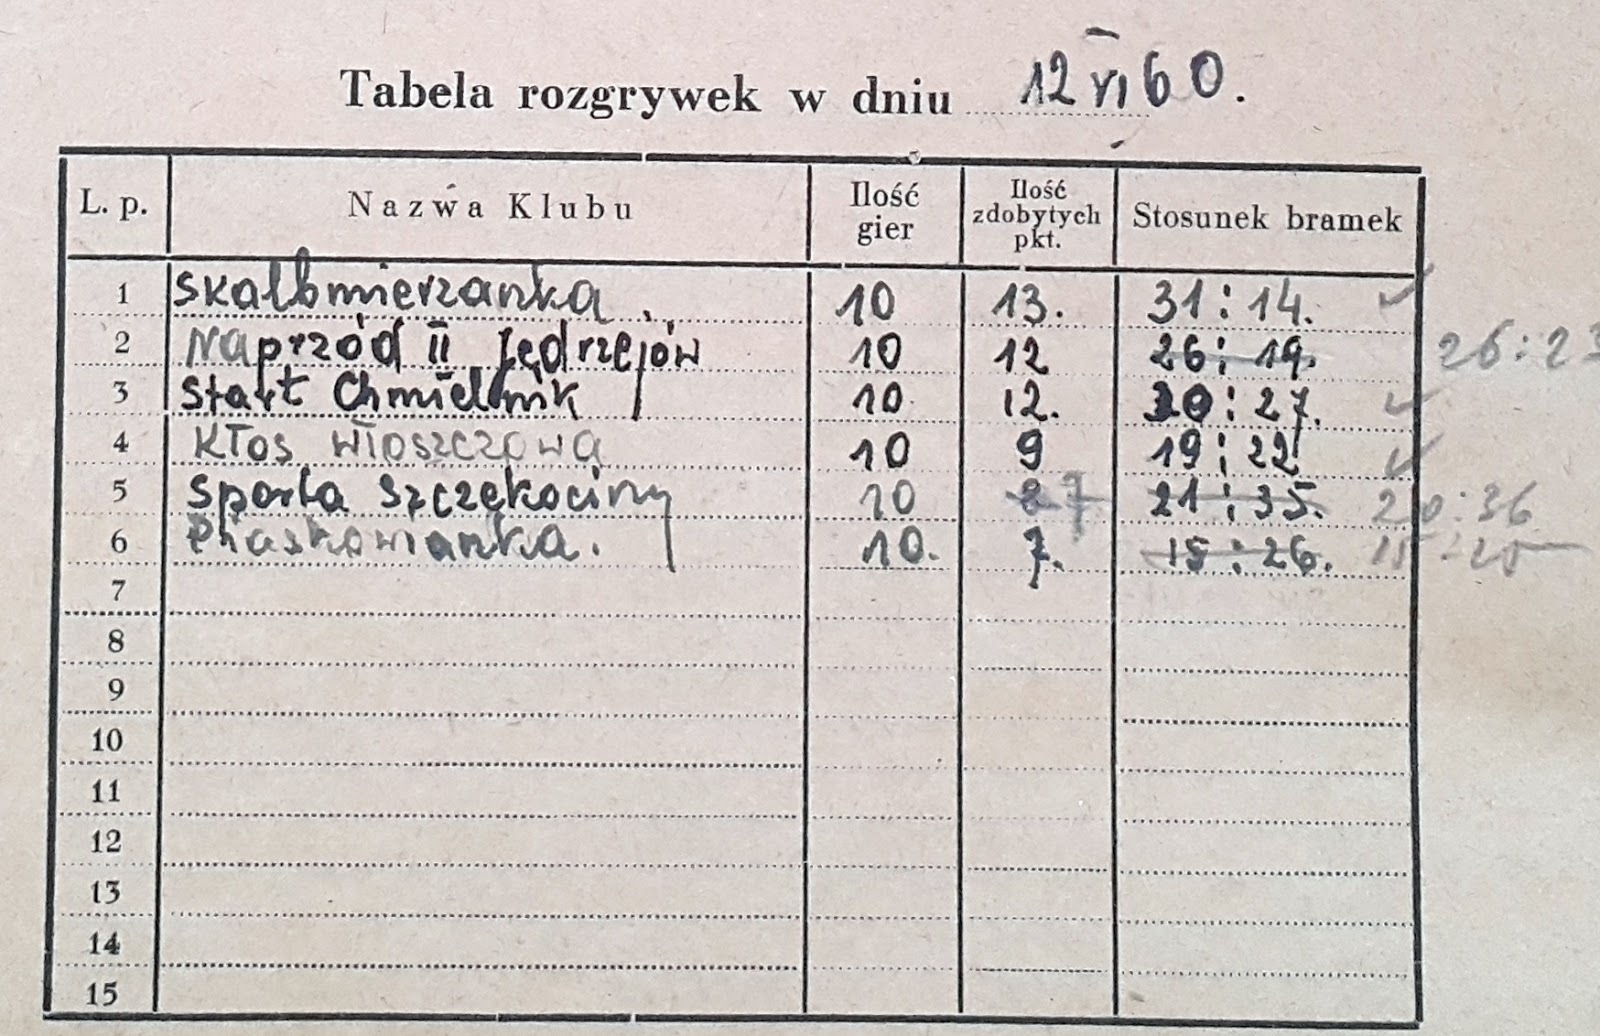 Tabela rozgrywek w dniu 12 VI 60.
L. p. Nazwa Klubu Ilość gier Ilość zdobytych pkt. Stosunek bramek
1 Skalbmierzanka. 10 13. 31 : 14. ✓
2 Naprzód II Jędrzejów 10 12 26 : 19. 26:23
3 Start Chmielnik 10 12. 30 : 27. ✓
4 Kłos Włoszczowa 10 9 19 : 22 ✓
5 Sparta Szczekociny 10 7 21 : 35. 20:36
6 Piaskowianka. 10. 7. 15 : 26. 15:25
7
8
9
10
11
12
13
14
15